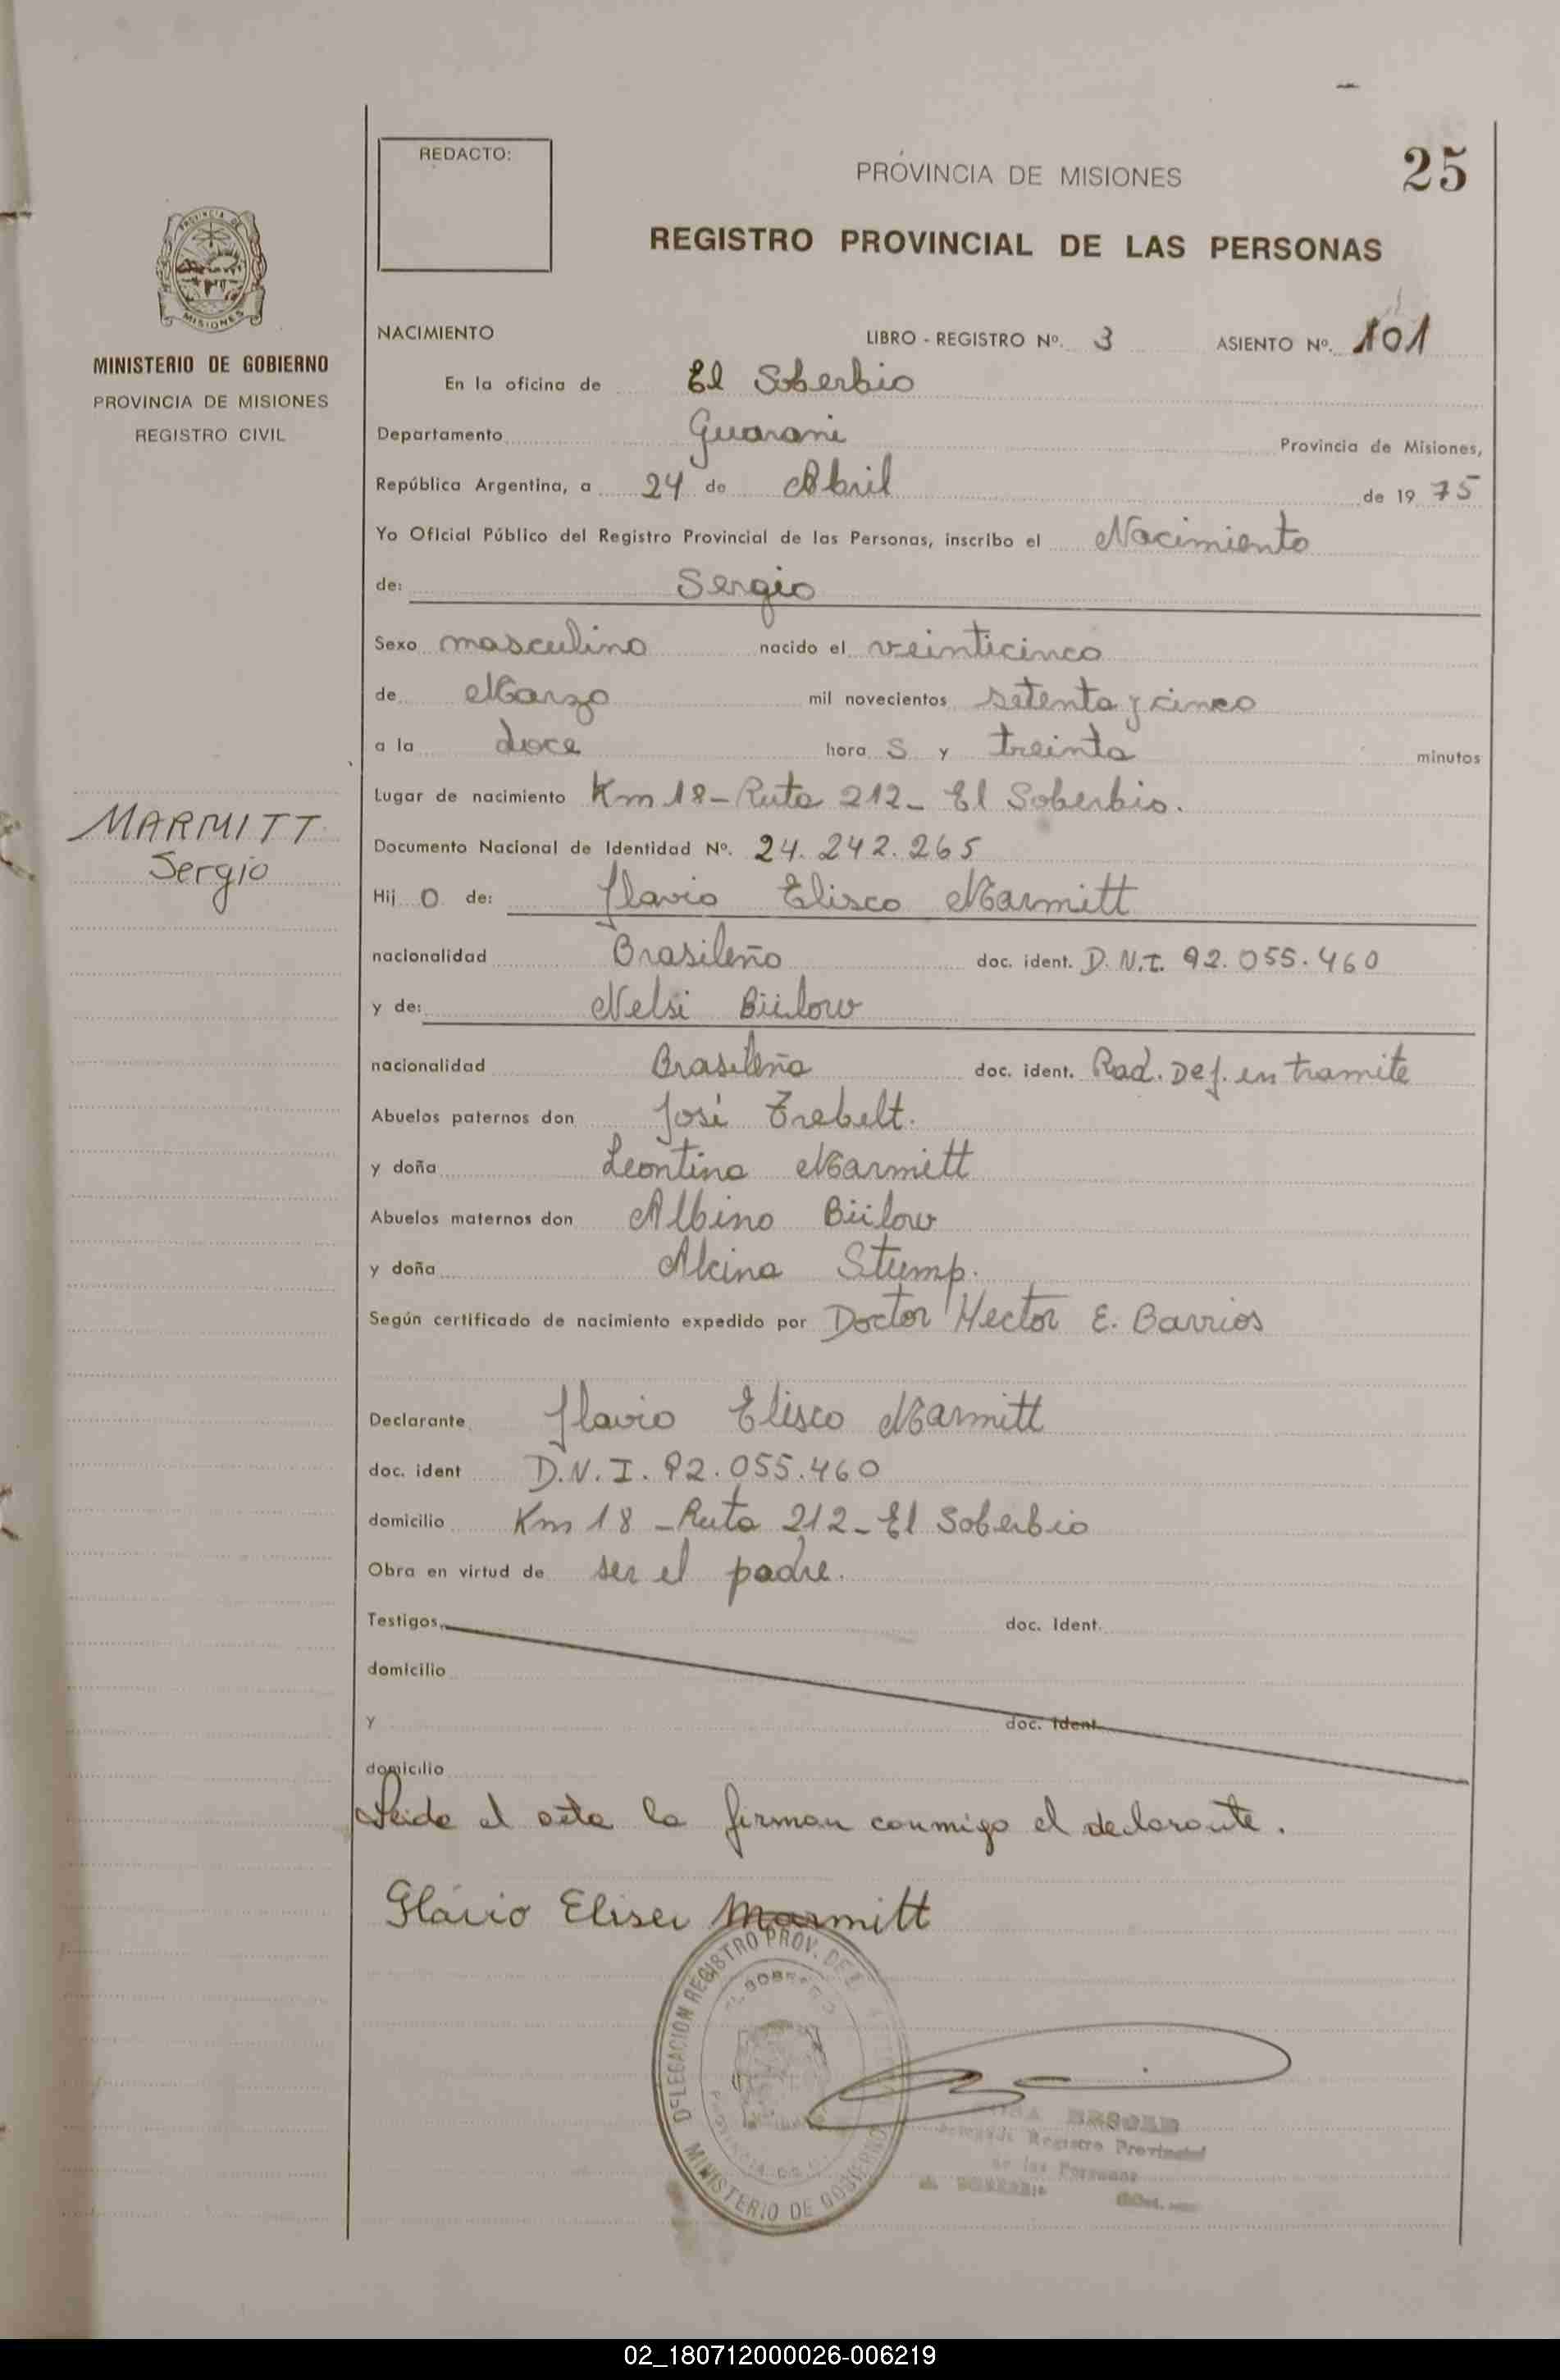 REDACTO:
PROVINCIA DE MISIONES
25
REGISTRO PROVINCIAL DE LAS PERSONAS
PROVINCIA DE
MISIONES
MINISTERIO DE GOBIERNO
PROVINCIA DE MISIONES
REGISTRO CIVIL
NACIMIENTO LIBRO - REGISTRO Nº. 3 ASIENTO Nº. 101
En la oficina de El Soberbio
Departamento Guarani Provincia de Misiones,
República Argentina, a 24 de Abril de 19 75
Yo Oficial Público del Registro Provincial de las Personas, inscribo el Nacimiento
de: Sergio
Sexo masculino nacido el veinticinco
de Marzo mil novecientos setenta y cinco
a la doce hora s y treinta minutos
Lugar de nacimiento Km 18 - Ruta 212 - El Soberbio.
MARMITT
Sergio
Documento Nacional de Identidad Nº. 24.242.265
Hij o de: Flavio Elisco Marmitt
nacionalidad Brasileño doc. ident. D.N.I. 92.055.460
y de: Nelsi Bülow
nacionalidad Brasileña doc. ident. Rad. Def. en tramite
Abuelos paternos don José Trebelt.
y doña Leontina Marmitt
Abuelos maternos don Albino Bülow
y doña Alcina Stump.
Según certificado de nacimiento expedido por Doctor Hector E. Barrios
Declarante Flavio Elisco Marmitt
doc. ident D.N.I. 92.055.460
domicilio Km 18 - Ruta 212 - El Soberbio
Obra en virtud de ser el padre.
Testigos doc. ident.
domicilio
y doc. ident.
domicilio
Leida el acta la firman conmigo el declarante.
Flávio Eliseu Marmitt
DELEGACION REGISTRO PROV. DE L
MINISTERIO DE GOBIERNO
Registro Provincial
de las Personas
02_180712000026-006219